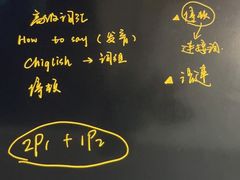 高级词汇
How to say (发音)
Chiglish → 词组
模板
2P₁ + 1P₂
▲ 模板
↓
连接词
▲ 语速